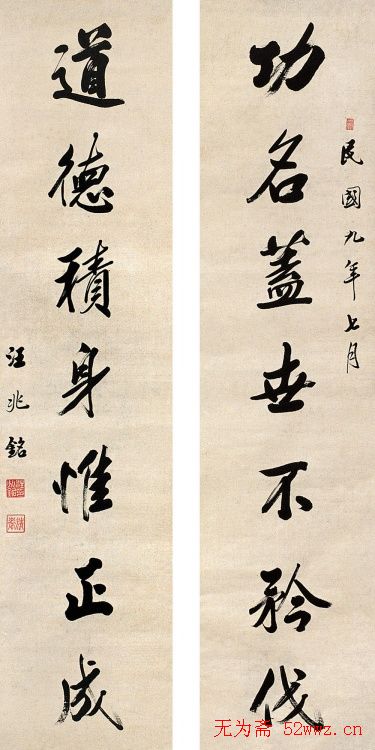 民國九年七月
功名蓋世不矜伐
道德積身惟正成
汪兆銘
无为斋 52wwz.cn